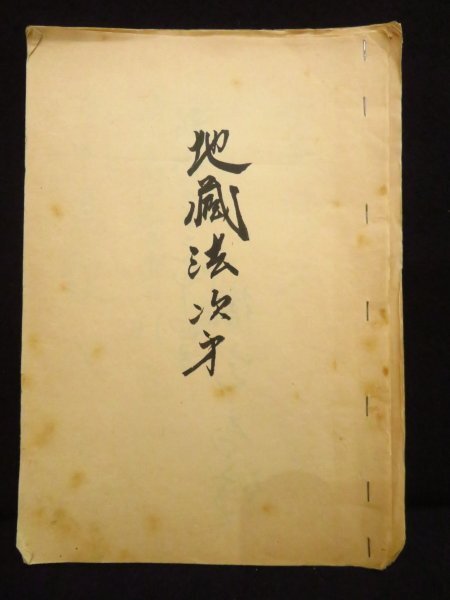 地蔵法次第